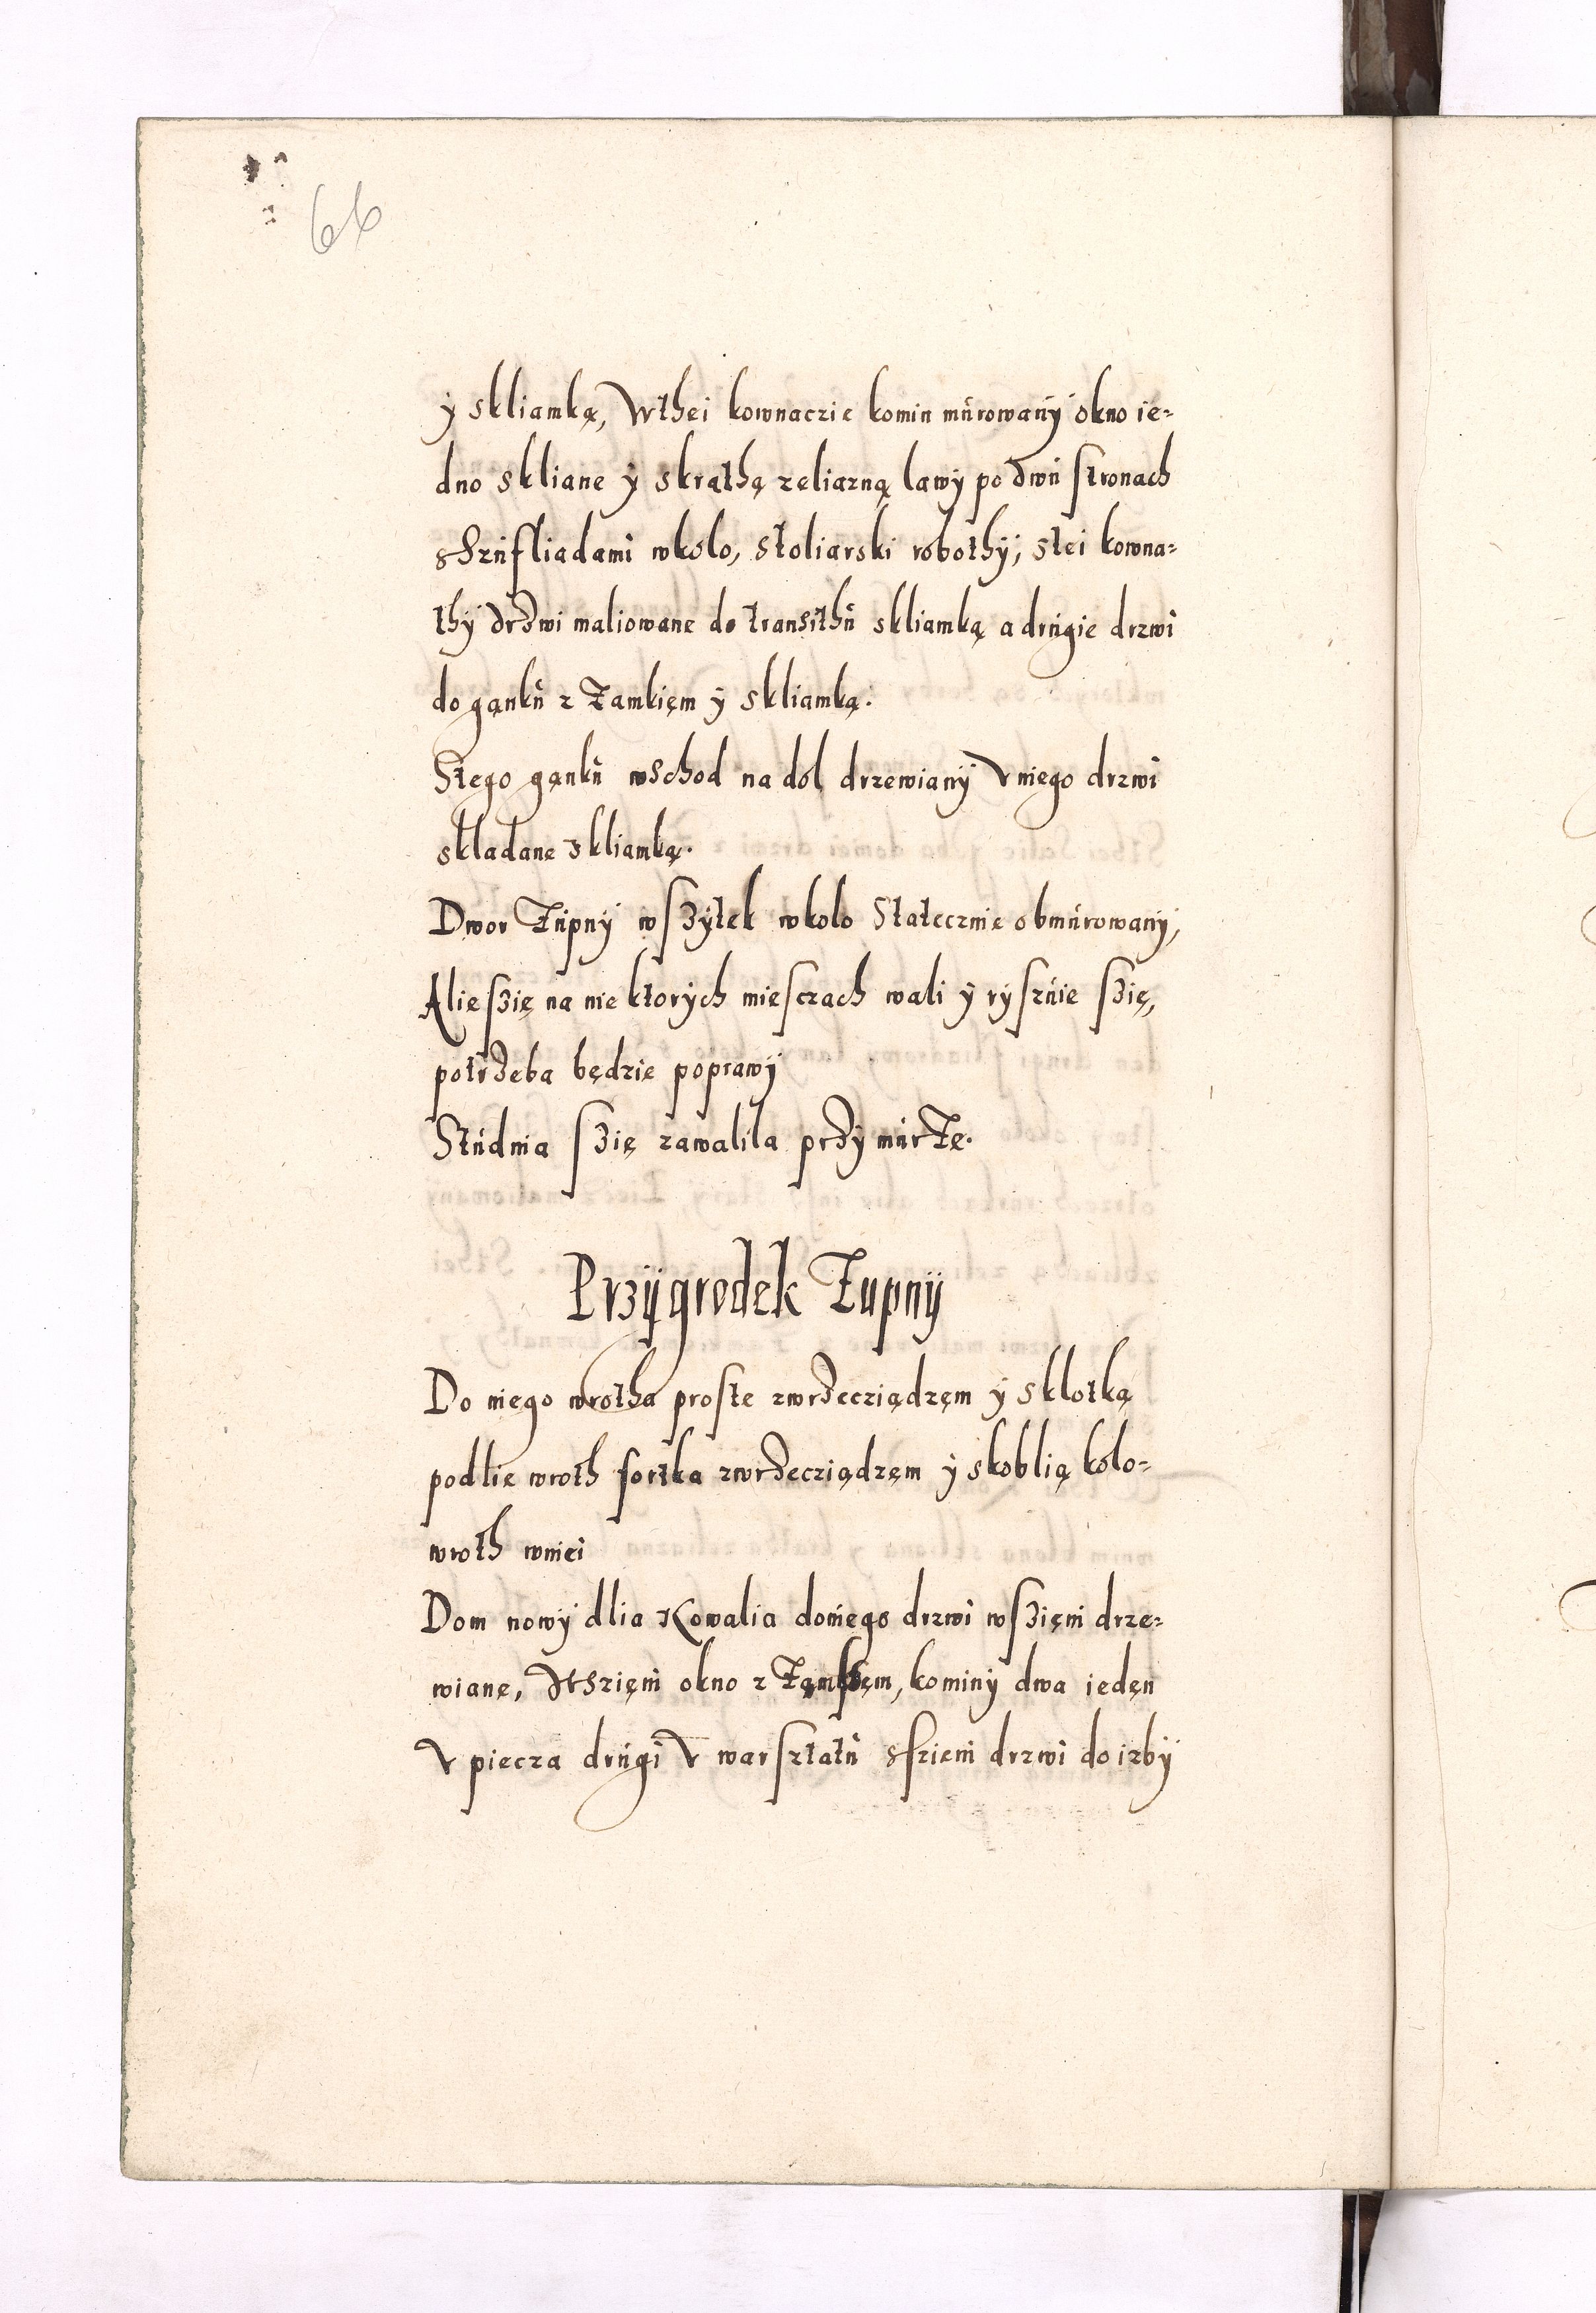 66
y skliamką, Wthei kownaczie komin murowany okno ie=
dno skliane y skrathą zeliazną lawy po dwu stronach
sszufliadami wkolo, stoliarski robothy, stei kowna=
thy drzwi maliowane do transithu skliamką a drugie drzwi
do gąnku z Zamkięm y skliamką.
Stego gąnku wschod na dol drzewiany V niego drzwi
skladane skliamką.
Dwor Zupny wszytek wkolo Statecznie obmurowany,
Alie szię na niektorych miesczach wali y rysznie szię,
potrzeba będzie poprawy
Studnia szię zawalila przy murze.
Przygrodek Zupny
Do niego wrotha proste zwrzecziądzęm y sklotką
podlie wroth fortka zwrzecziądzęm y skoblią kolo=
wroth wniei
Dom nowy dlia Kowalia doniego drzwi wszięni drze=
wianę, Wszięni okno z Zamkięm, kominy dwa iedęn
V piecza drugi V warsztatu sszieni drzwi do izby